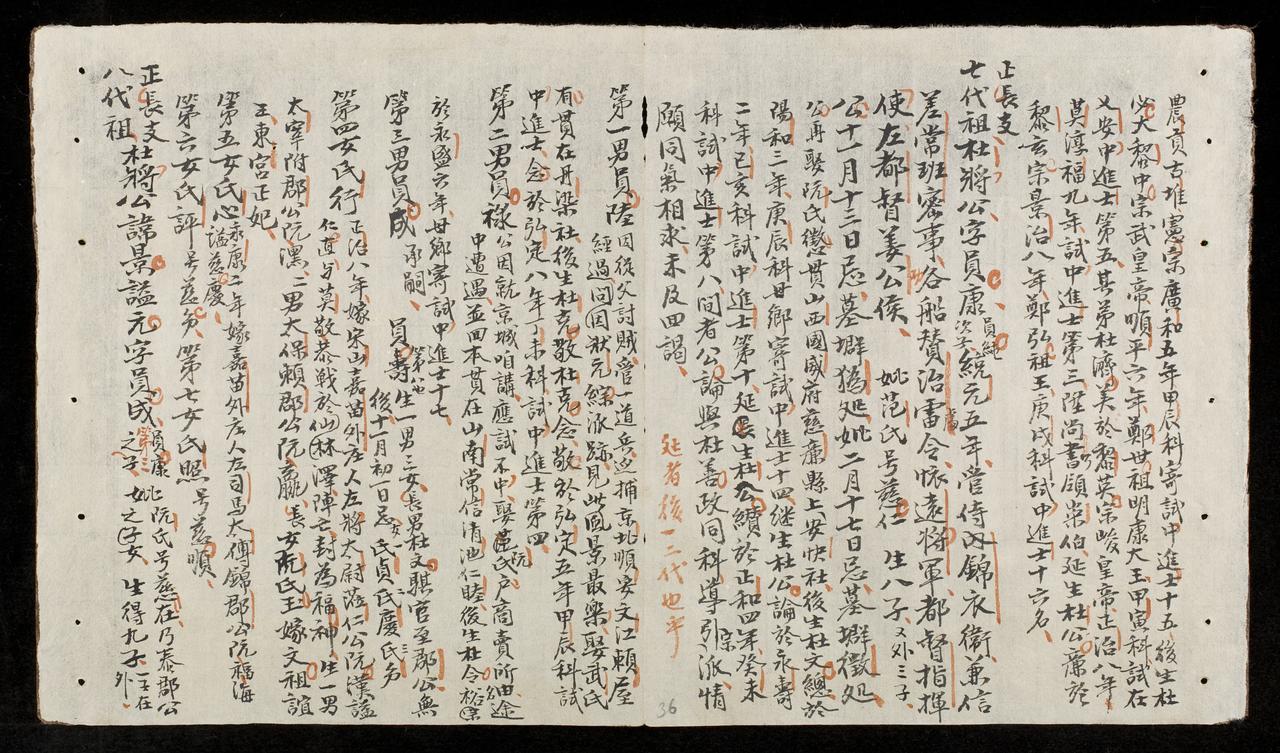 農貢古堆憲宗廣和五年甲辰科寄試中進士十五後生杜
必大黎中宗武皇帝順平六年鄭世祖明康大王甲寅科試在
又安中進士第五其弟杜濟美於黎英宗峻皇帝正治八年
莫淳福九年試中進士第三陞尚書領崇伯延生杜公廉於
黎玄宗景治八年鄭弘祖王庚戌科試中進士十六名
正長支
七代祖杜將公字員康員純統元五年當侍內錦衣衛兼信
差當班密事各船贊治雷令懷遠將軍都督指揮
使左都督姜公侯 妣范氏号慈仁 生八子又外三子
公十一月十三日忌墓塀猪処妣二月十七日忌墓塀徵処
公再娶阮氏懲貫山西國威府慈廉縣上安快社後生杜文總於
陽和三年庚辰科母鄉寄試中進士十四継生杜公論於永壽
二年己亥科試中進士第十延長生杜公纘於正和四年癸未
科試中進士第八間者公論與杜善政同科導引宗派情
願同氣相求未及四謁
延者後一二代也乎
36
第一男員陸因從父討賊管一道兵迆捕京北順安文江賴屋
經過問因狀元綜派跡見此風景最樂娶武氏
有貫在丹染社後生杜克敬杜克念敬於弘定五年甲辰科試
中進士念於弘定八年丁未科試中進士第四
第二男員祿公因就京城咱講應試不中娶阮氏戶商賣所由途
中遭遇並回本貫在山南常信清池仁睦後生杜令裕
於永盛六年母鄉寄試中進士十七
第三男員成承嗣 員壽第八生一男三女長男杜文騏官至郡公無
後十一月初一日忌女氏貞仁氏慶三氏務
第四女氏行正治八年嫁宋山嘉苗外庄人左將太尉蔭仁公阮漢謚
仁直与莫敬恭戰於仙林澤陣亡封為福神生一男
太宰附郡公阮潶二男太保賴郡公阮廳長女阮氏王嫁文祖誼
王東宮正妃
第五女氏心永康二年嫁嘉苗外庄人左司馬太傅錦郡公阮福海
謚慈慶
第六女氏評号慈務 第七女氏照号慈順
正長支杜將公諱景謚元字員成員康第三之子妣阮氏号慈在乃泰郡公之子女 生得九子一主在外
八代祖